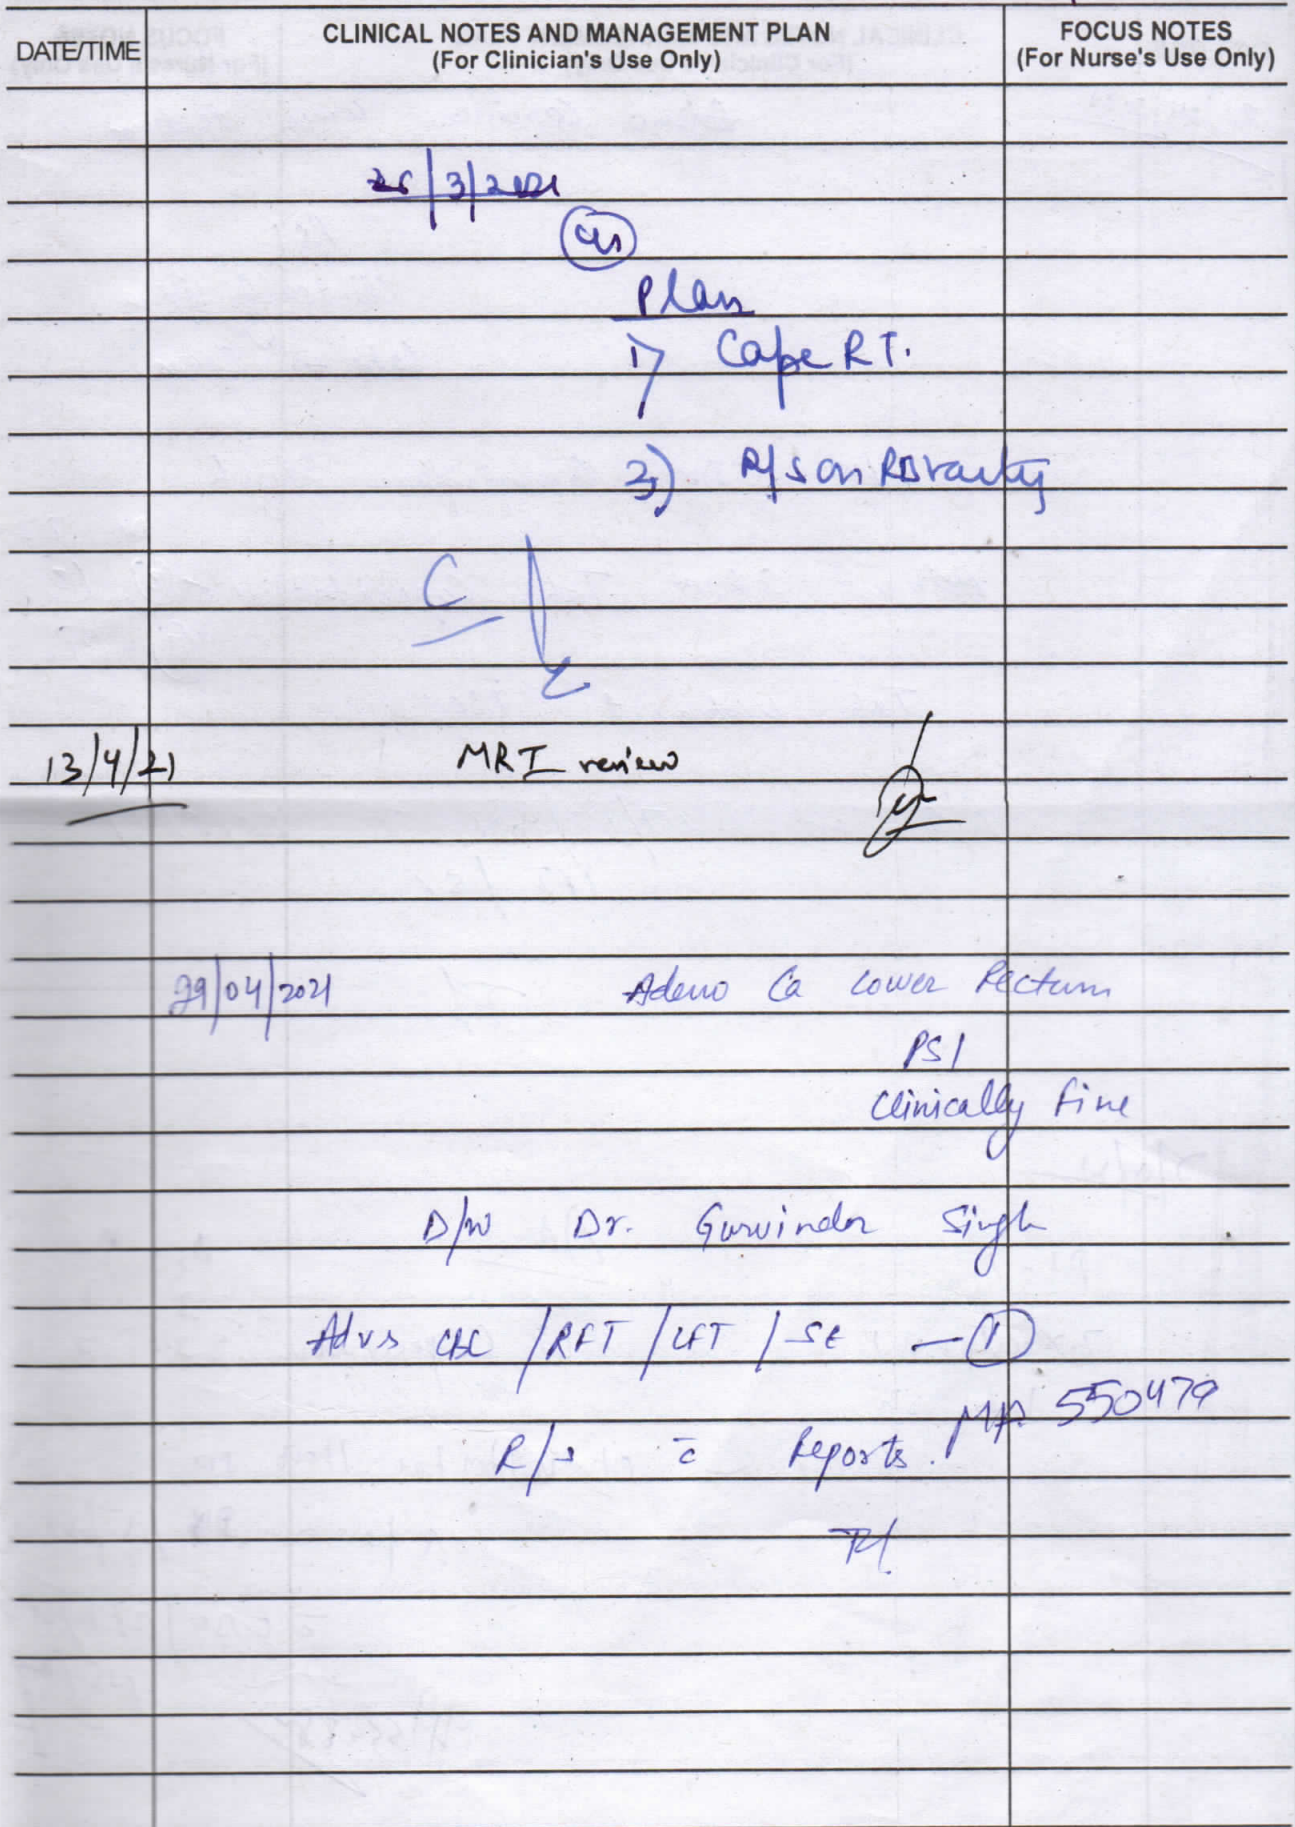 DATE/TIME
CLINICAL NOTES AND MANAGEMENT PLAN
(For Clinician's Use Only)
FOCUS NOTES
(For Nurse's Use Only)
/3/2021
Plan
1) Cape RT.
R/s on
C
13/4/21 MRI review
29/04/2021 Adeno Ca Lower Rectum
PS1
Clinically fine
D/w Dr. Gurvinder Singh
Adv CBC /RFT /LFT / SE — 1
550479
R/s c̄ Reports.